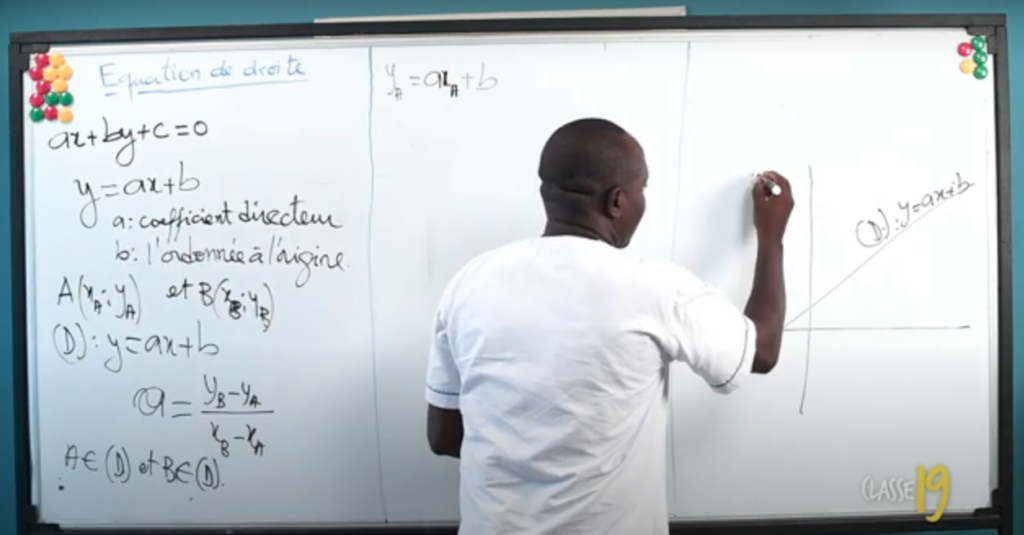 Equation de droite
ax+by+c=0
y=ax+b
a: coefficient directeur
b: l'ordonnée à l'origine.
A(x_A; y_A) et B(x_B; y_B)
(D): y=ax+b
a = \frac{y_B-y_A}{x_B-x_A}
A∈(D) et B∈(D).
y_A=ax_A+b
(D): y=ax+b
CLASSE 19